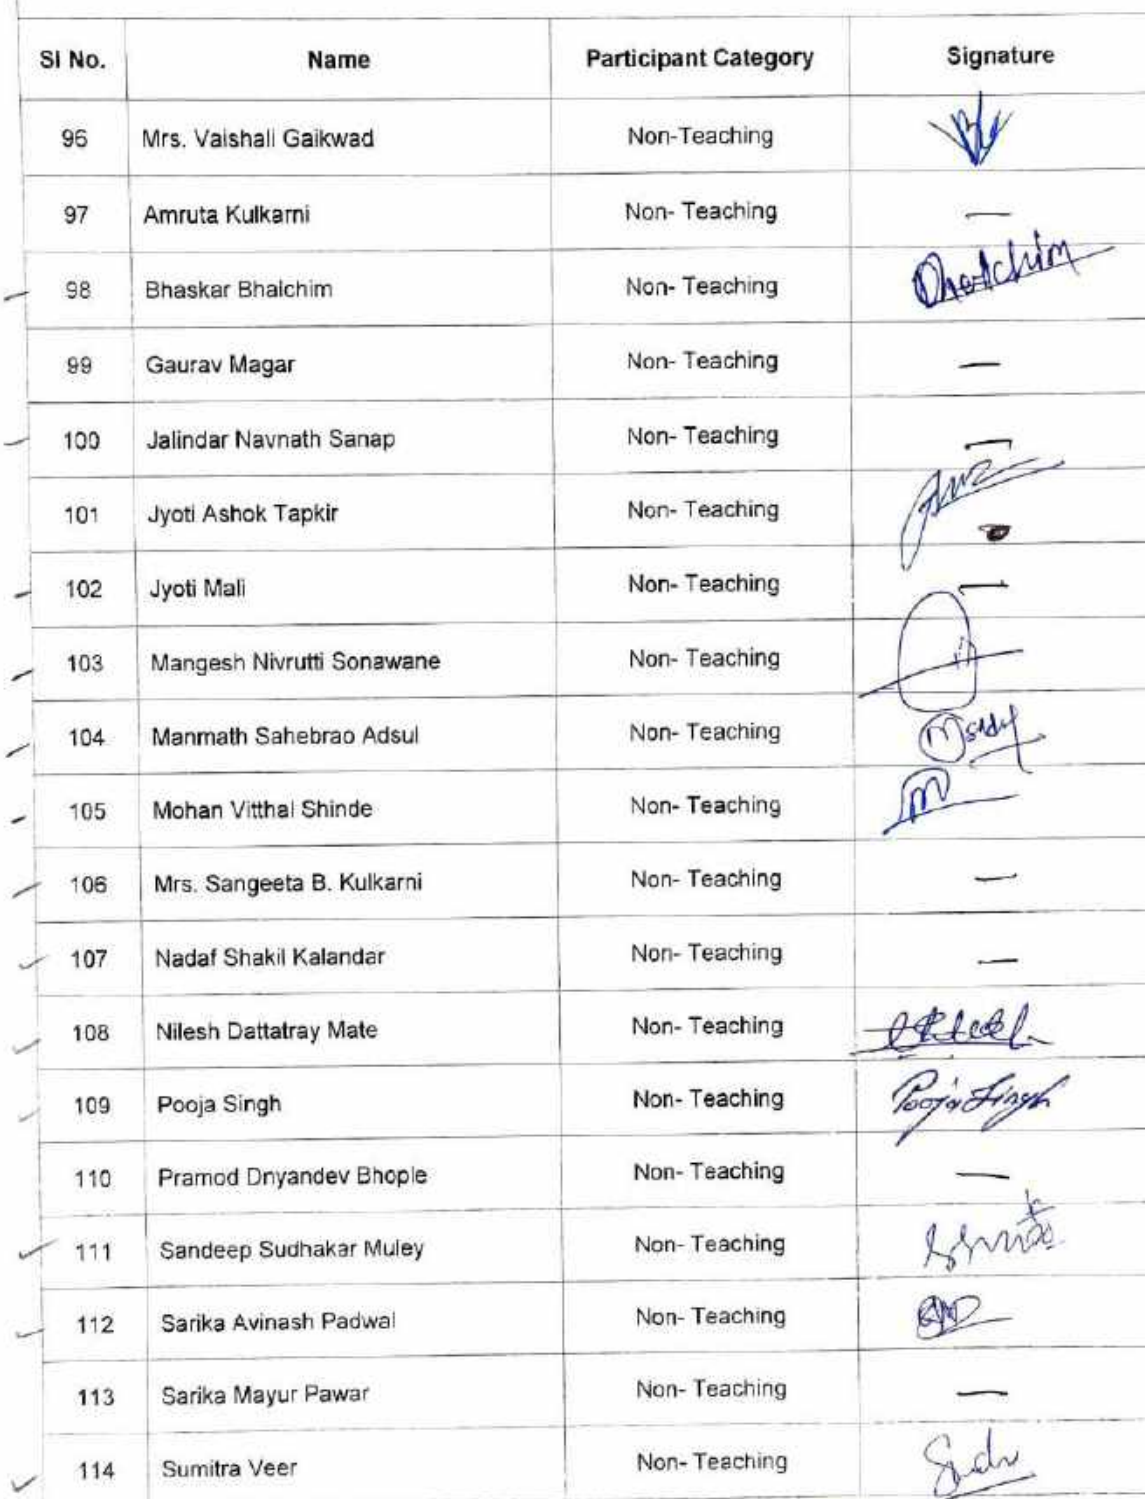 Sl No. Name Participant Category Signature
96 Mrs. Vaishali Gaikwad Non-Teaching
97 Amruta Kulkarni Non- Teaching —
98 Bhaskar Bhalchim Non- Teaching Bhalchim
99 Gaurav Magar Non- Teaching —
100 Jalindar Navnath Sanap Non- Teaching —
101 Jyoti Ashok Tapkir Non- Teaching
102 Jyoti Mali Non- Teaching —
103 Mangesh Nivrutti Sonawane Non- Teaching
104 Manmath Sahebrao Adsul Non- Teaching
105 Mohan Vitthal Shinde Non- Teaching
106 Mrs. Sangeeta B. Kulkarni Non- Teaching —
107 Nadaf Shakil Kalandar Non- Teaching —
108 Nilesh Dattatray Mate Non- Teaching
109 Pooja Singh Non- Teaching Pooja Singh
110 Pramod Dnyandev Bhople Non- Teaching —
111 Sandeep Sudhakar Muley Non- Teaching
112 Sarika Avinash Padwal Non- Teaching
113 Sarika Mayur Pawar Non- Teaching —
114 Sumitra Veer Non- Teaching